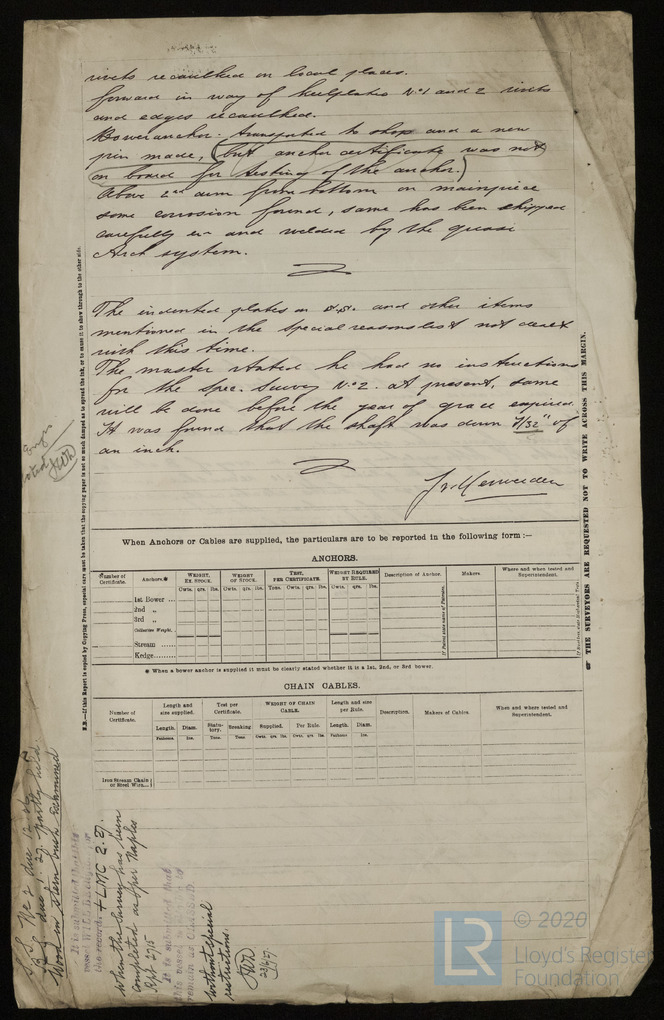 rivets recaulked on local places.
forward in way of keelplates No1 and 2 rivets
and edges recaulked.
Bower anchor: transported to shop and a new
pin made, (but anchor certificate was not
on board for testing of the anchor.)
Above 2nd arm from bottom on mainpiece
some corrosion found, same has been chipped
carefully and welded by the quasi
Arch system.
The indented plates on s.s. and other items
mentioned in the special reasons list not dealt
with this time.
The master stated he had no instructions
for the spec. Survey No2. at present, same
will be done before the year of grace expired.
It was found that the shaft was down 7/32" of
an inch.
When Anchors or Cables are supplied, the particulars are to be reported in the following form :—
ANCHORS.
Number of Certificate. Anchors.* WEIGHT, EX STOCK. WEIGHT OF STOCK. TEST, PER CERTIFICATE. WEIGHT REQUIRED BY RULE. Description of Anchor. Makers. Where and when tested and Superintendent.
Cwts. qrs. lbs. Cwts. qrs. lbs. Tons. Cwts. qrs. lbs. Cwts. qrs. lbs.
1st Bower ...
2nd „
3rd „
Collective Weight.
Stream ......
Kedge.........
* When a bower anchor is supplied it must be clearly stated whether it is a 1st, 2nd, or 3rd bower.
CHAIN CABLES.
Number of Certificate. Length and size supplied. Test per Certificate. WEIGHT OF CHAIN CABLE. Length and size per Rule. Description. Makers of Cables. When and where tested and Superintendent.
Length. Diam. Statutory. Breaking Supplied. Per Rule. Length. Diam.
Fathoms Ins. Tons. Tons. Cwts. qrs. lbs. Cwts. qrs. lbs. Fathoms Ins.
Iron Stream Chain or Steel Wire...
N.B.—If this Report is copied by Copying Press, especial care must be taken that the copying paper is not so much damped as to spread the ink, or to cause it to show through to the other side.
THE SURVEYORS ARE REQUESTED NOT TO WRITE ACROSS THIS MARGIN.
S.S. No 2 due 12.26
due 1.27. partly held
Wood in stern bush examined
It is submitted that this
the record.
+LMC 2.27.
when the Survey has been
completed as per Naples
Rpt 2715
It is submitted that
this vessel
remain as CLASSED.
without special
restrictions.
© 2020
LR
Lloyd's Register
Foundation